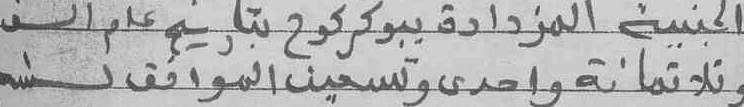 الجنبية المزدادة ببوكركوح بتاريخ عام الف
وتلاتمائة واحدى وتسعين الموافق لسنة